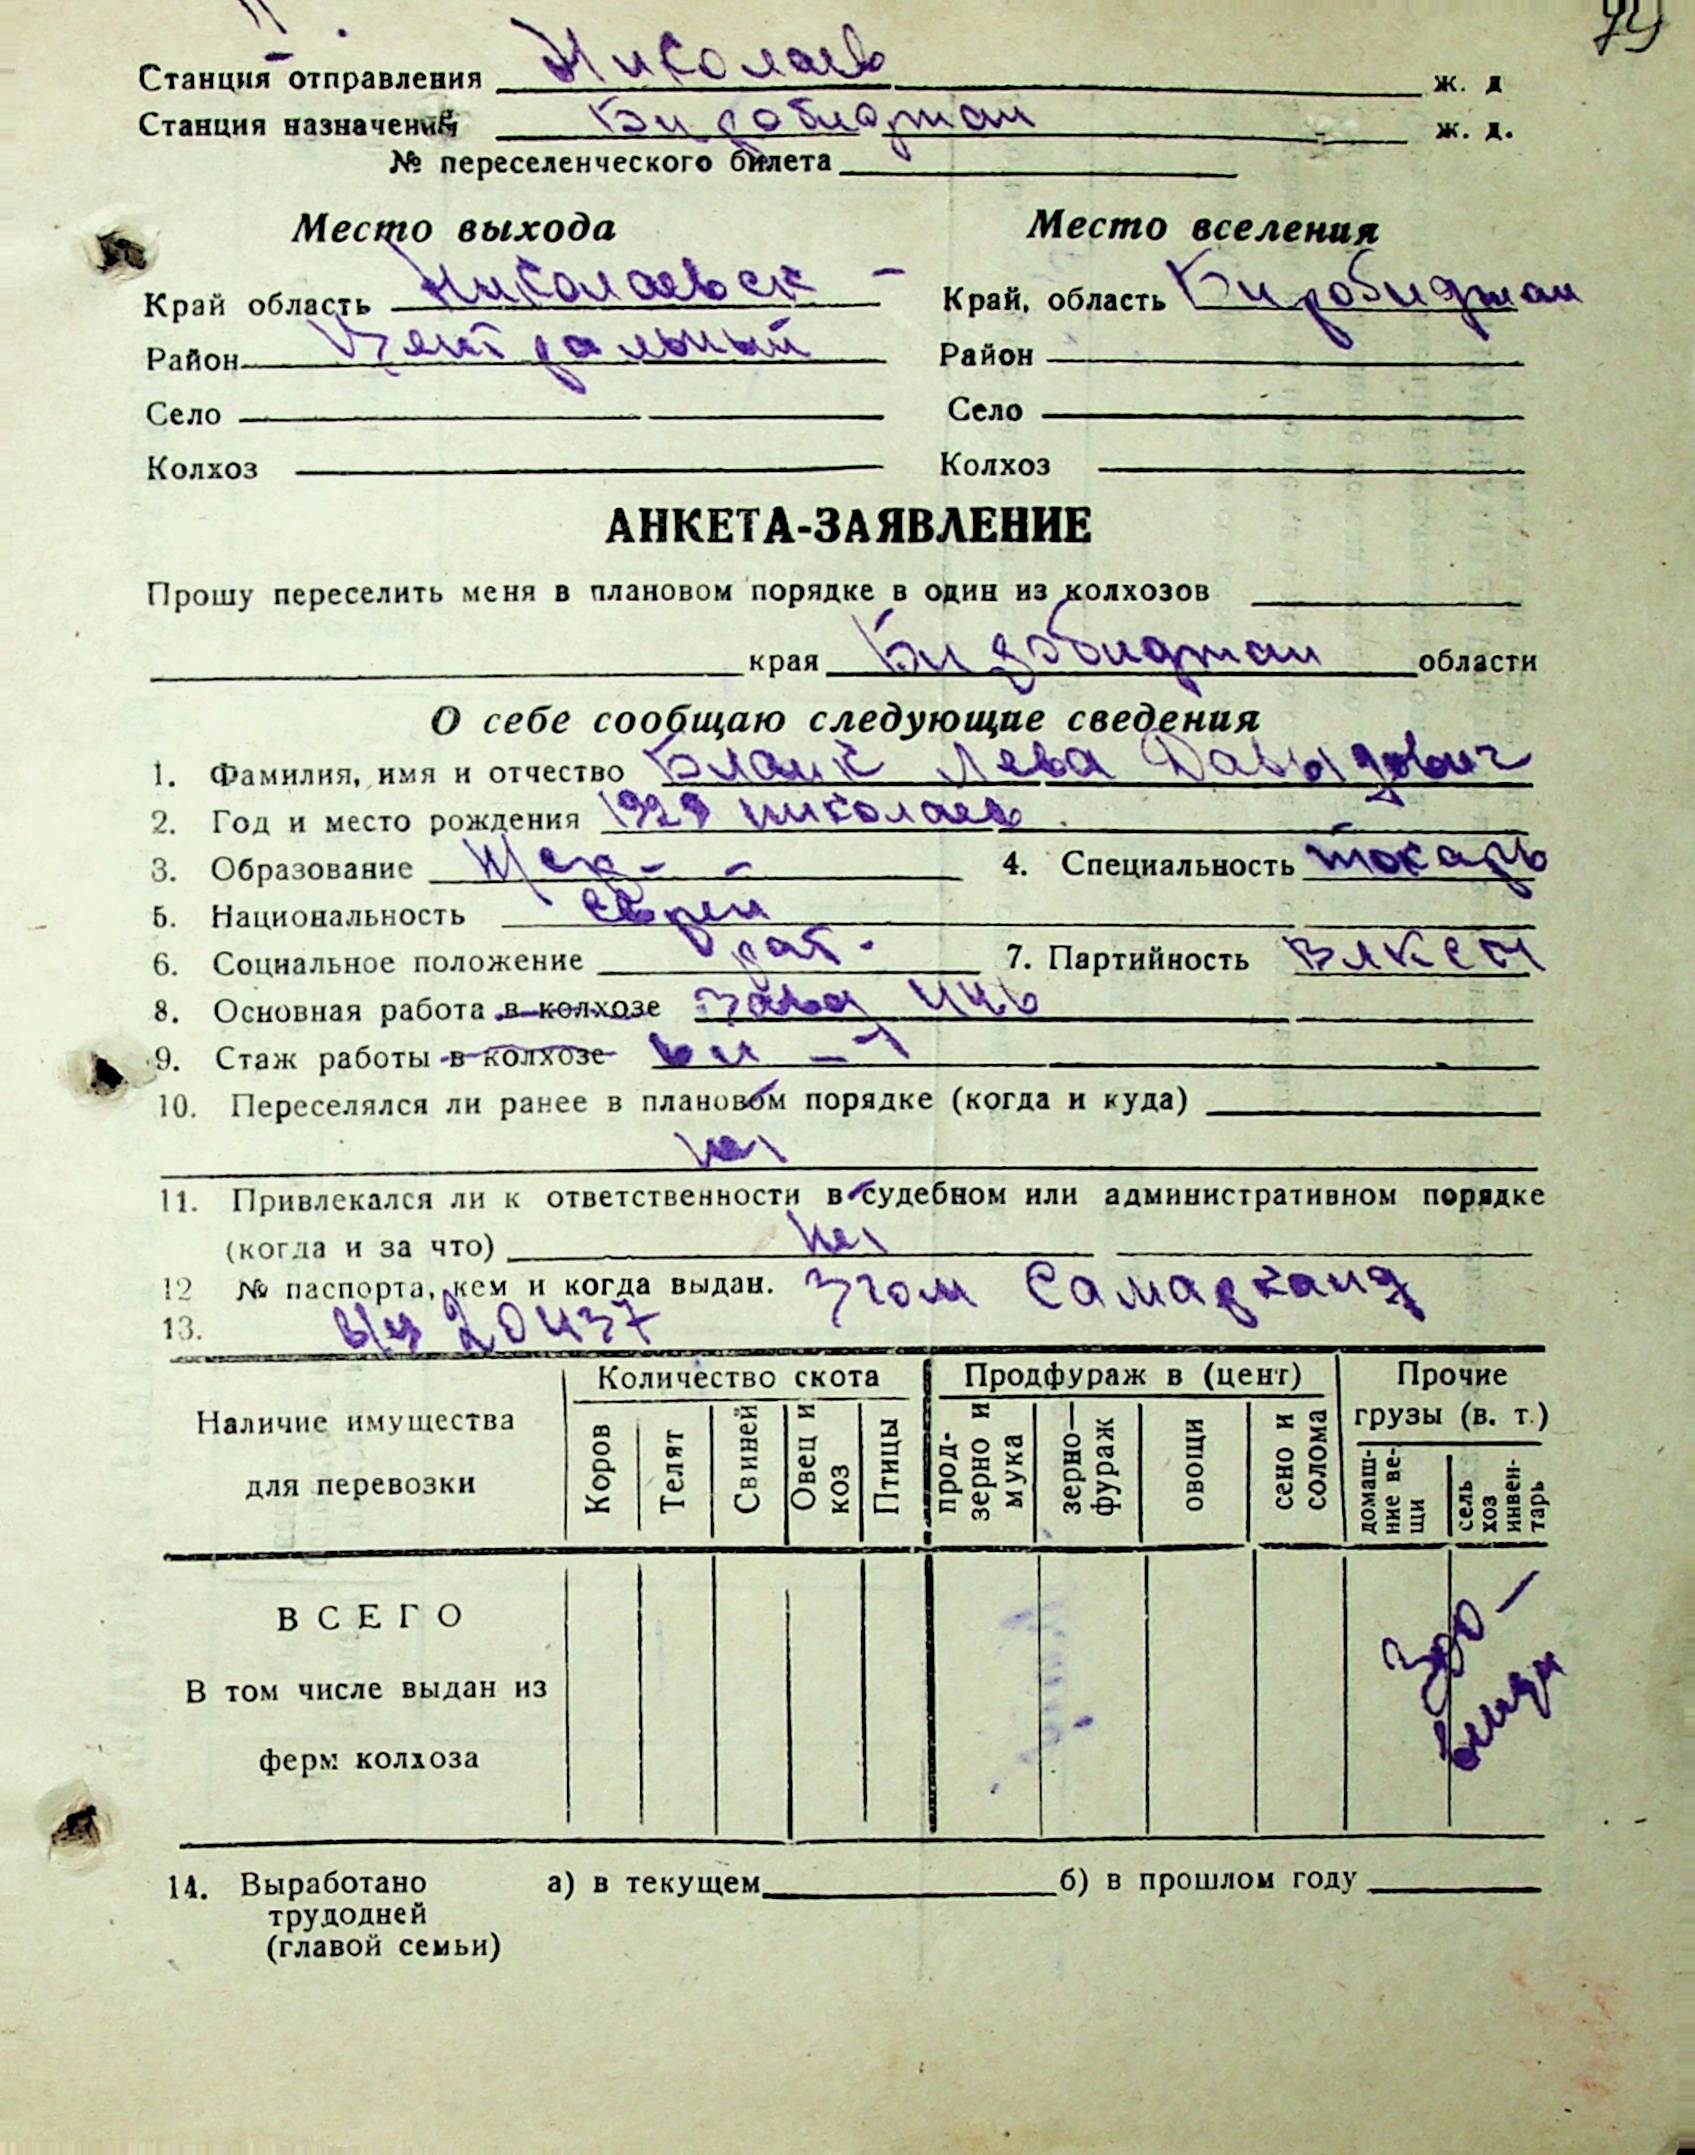 Станция отправления Николаев ж. д
Станция назначения Биробиджан ж. д.
№ переселенческого билета
Место выхода Место вселения
Край область Николаевск - Край, область Биробиджан
Район Центральный Район
Село Село
Колхоз Колхоз
АНКЕТА-ЗАЯВЛЕНИЕ
Прошу переселить меня в плановом порядке в один из колхозов
края Биробиджан области
О себе сообщаю следующие сведения
1. Фамилия, имя и отчество Бланк Лева Давыдович
2. Год и место рождения 1929 Николаев
3. Образование 4. Специальность токарь
5. Национальность еврей
6. Социальное положение раб. 7. Партийность ВЛКСМ
8. Основная работа в колхозе завод
9. Стаж работы в колхозе
10. Переселялся ли ранее в плановом порядке (когда и куда)
нет
11. Привлекался ли к ответственности в судебном или административном порядке
(когда и за что) нет
12 № паспорта, кем и когда выдан. Згом Самарканд
13. 20437
Наличие имущества для перевозки
Количество скота Продфураж в (цент) Прочие грузы (в. т.)
Коров Телят Свиней Овец и коз Птицы прод-зерно и мука зерно—фураж овощи сено и солома домаш-ние ве-щи сель хоз инвен-тарь
ВСЕГО
В том числе выдан из
ферм колхоза
вещи
14. Выработано а) в текущем б) в прошлом году
трудодней
(главой семьи)